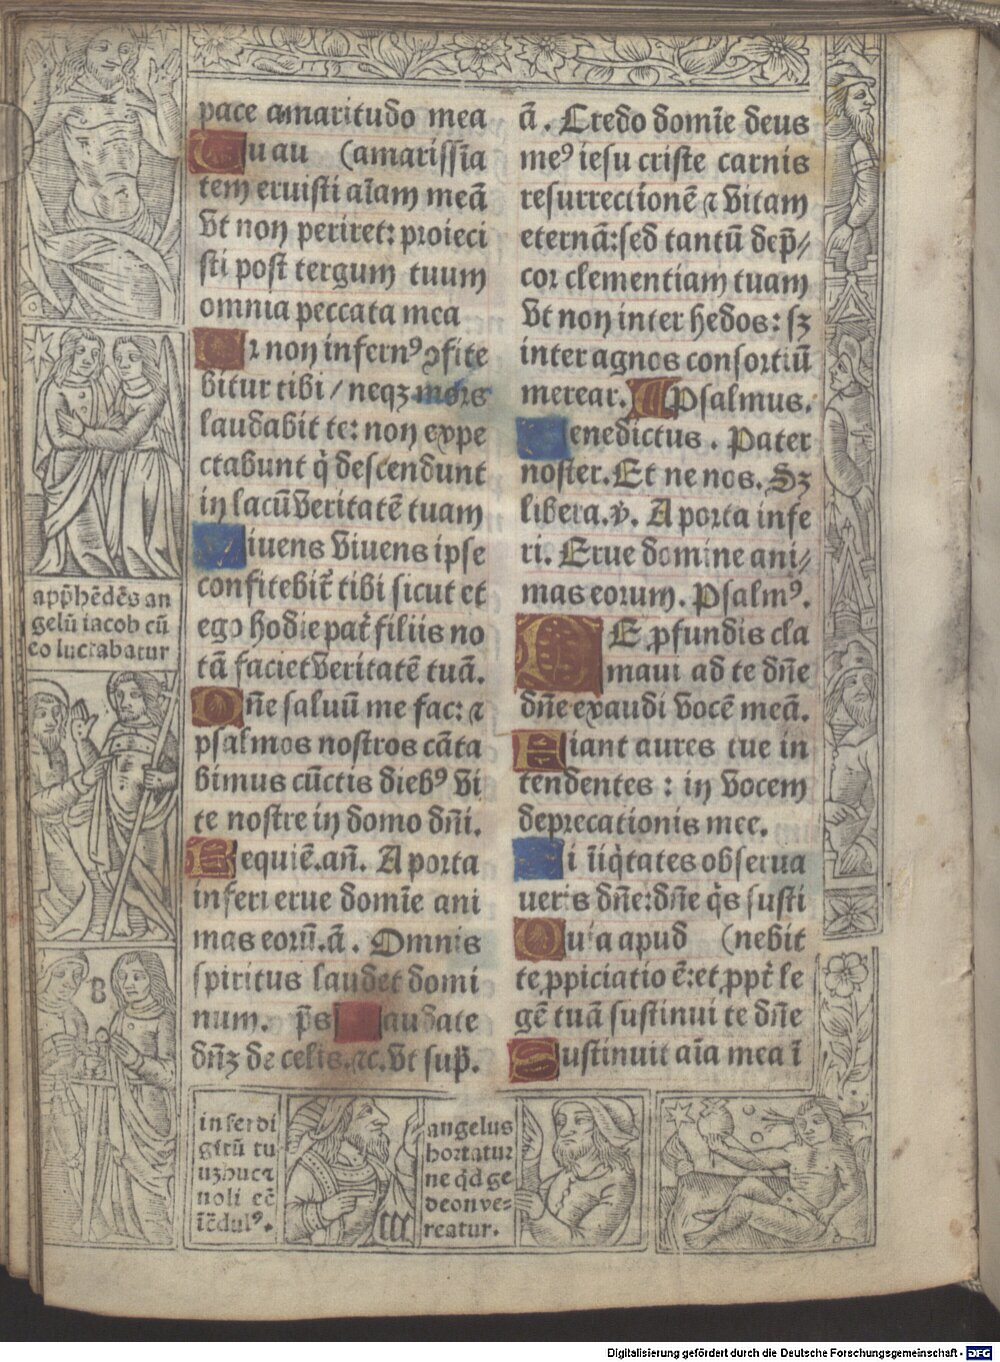 pace amaritudo mea
Tu aū (amarissīa
tem eruisti aīam meā
vt non periret: proieci
sti post tergum tuum
omnia peccata mea
Qr non infernꝰ ꝯfite
bitur tibi / neqꝫ mors
laudabit te: non expe
ctabunt q̄ descendunt
in lacū veritatē tuam
Viuens viuens ipse
confitebit̄ tibi sicut et
ego hodie pat̄ filiis no
tā faciet veritatē tuā.
Dn̄e saluū me fac: ⁊
psalmos nostros cāta
bimus cūctis diebꝰ vi
te nostre in domo dn̄i.
Requiē. an̄. A porta
inferi erue domīe ani
mas eorū. ā. Omnis
spiritus laudet domi
num. p̄s Laudate
dn̄ꝫ de celis. ⁊c. vt sup̄.
ā. Credo domīe deus
meꝰ iesu criste carnis
resurrectionē ⁊ vitam
eternā: sed tantū dep̄⸗
cor clementiam tuam
vt non inter hedos: sꝫ
inter agnos consortiū
merear. Psalmus.
Benedictus. Pater
noster. Et ne nos. Sꝫ
libera. ℣. A porta infe
ri. Erue domine ani⸗
mas eorum. Psalmꝰ.
DE ꝓfundis cla
maui ad te dn̄e
dn̄e exaudi vocē meā.
Fiant aures tue in
tendentes: in vocem
deprecationis mee.
Si īiq̄tates obserua
ueris dn̄e: dn̄e q̄s susti
Quia apud (nebit
te ꝓpiciatio ē: et ꝓpt̄ le
gē tuā sustinui te dn̄e
Sustinuit aīa mea ī
app̄hēdēs an
gelū iacob cū
eo luctabatur
B
infer di
gitū tu
uꝫ huc ⁊
noli eē
īc̄dulꝰ.
angelus
hortatur
ne q̄d ge
deon ve⸗
reatur.
Digitalisierung gefördert durch die Deutsche Forschungsgemeinschaft - DFG